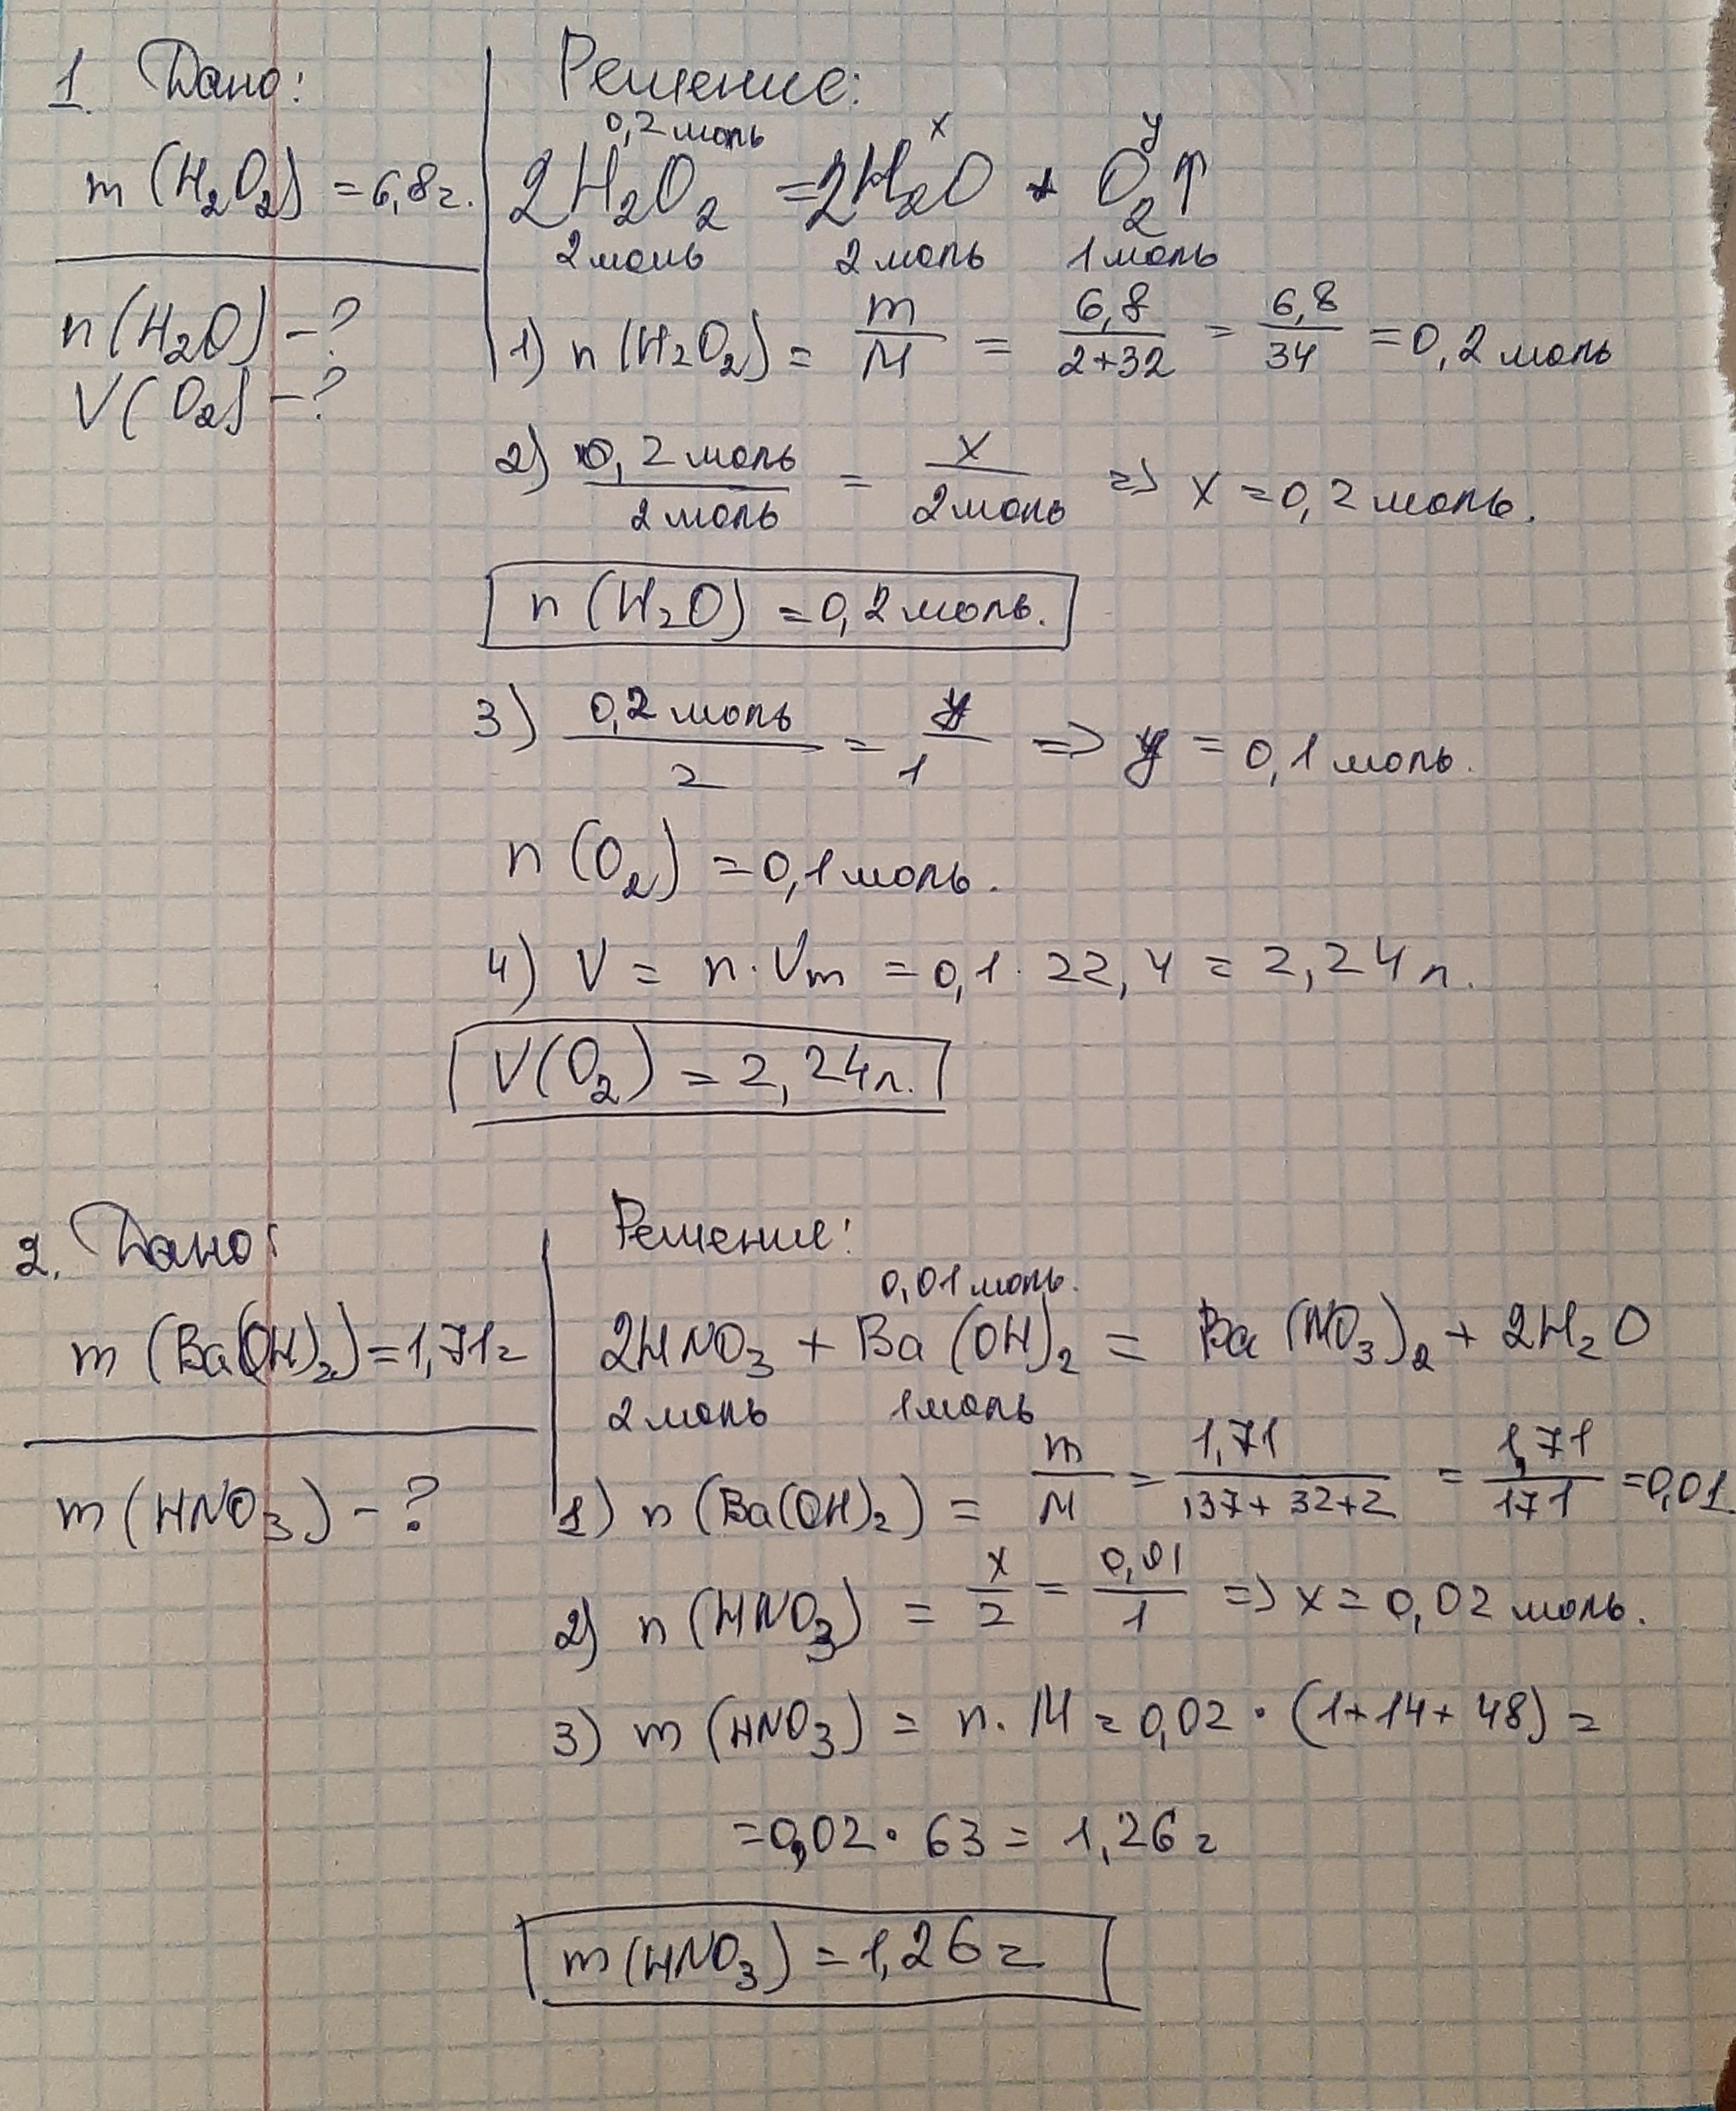 1. Дано:
m (H₂O₂) = 6,8г.
n (H₂O) – ?
V (O₂) – ?
Решение:
0,2 моль x y
2H₂O₂ = 2H₂O + O₂↑
2 моль 2 моль 1 моль
1) n (H₂O₂) = m/M = 6,8/2+32 = 6,8/34 = 0,2 моль
2) 0,2 моль/2 моль = x/2 моль => x = 0,2 моль.
n (H₂O) = 0,2 моль.
3) 0,2 моль/2 = y/1 => y = 0,1 моль.
n (O₂) = 0,1 моль.
4) V = n · Vm = 0,1 · 22,4 = 2,24 л.
V(O₂) = 2,24 л.
2. Дано:
m (Ba(OH)₂) = 1,71г
m (HNO₃) – ?
Решение:
0,01 моль.
2HNO₃ + Ba(OH)₂ = Ba(NO₃)₂ + 2H₂O
2 моль 1 моль
1) n (Ba(OH)₂) = m/M = 1,71/137+32+2 = 1,71/171 = 0,01
2) n (HNO₃) = x/2 = 0,01/1 => x = 0,02 моль.
3) m (HNO₃) = n · M = 0,02 · (1+14+48) =
= 0,02 · 63 = 1,26 г
m (HNO₃) = 1,26 г